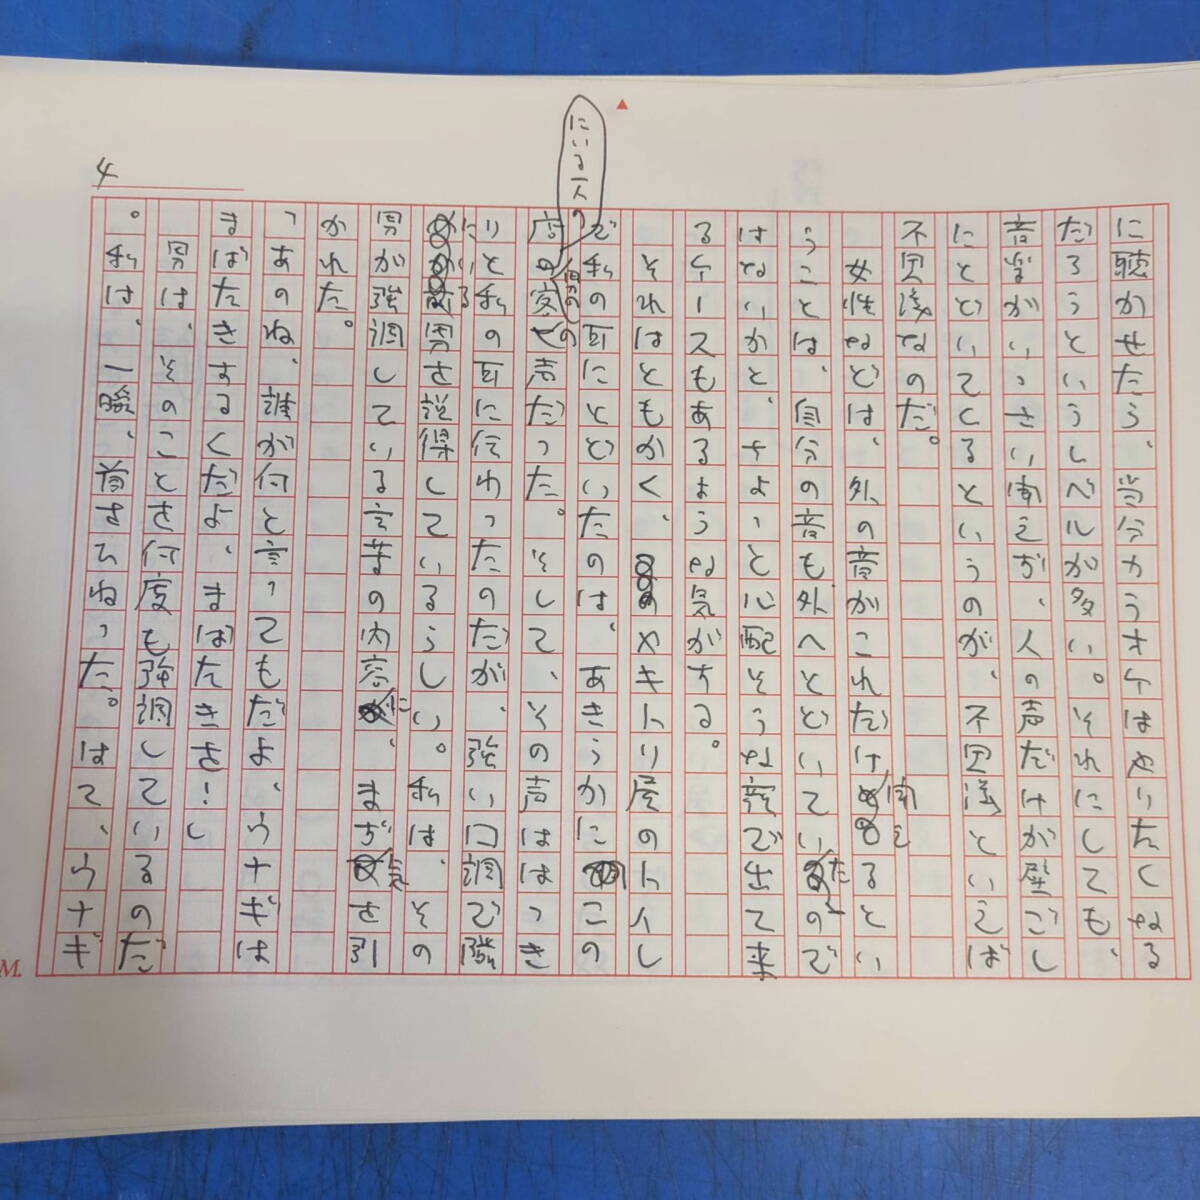 4
に聴かせたう、当今カラオケはやりたくなる
だろうというレベルが多い。それにしても、
音楽がいっさい聞えず、人の声だけが壁ごし
にとどいてくるというのが、不思議といえば
不思議なのだ。
女性などは、外の音がこれだけ聞えるとい
うことは、自分の音も外へとどいていたので
はないかと、ちょっと心配そうな顔で出て来
るケースもあるような気がする。
それはともかく、ヤキトリ屋のトイレ
で私の耳にとどいたのは、あきらかにこの
店にいる人の男の声だった。そして、その声ははっき
りと私の耳に伝わったのだが、強い口調で隣
にいる男を説得しているらしい。私は、その
男が強調している言葉の内容に、まず気を引
かれた。
「あのね、誰が何と言ってもだよ、ウナギは
まばたきするくだよ、まばたきを!」
男は、そのことを何度も強調しているのだ
。私は、一瞬、首をひねった。はて、ウナギ
M.